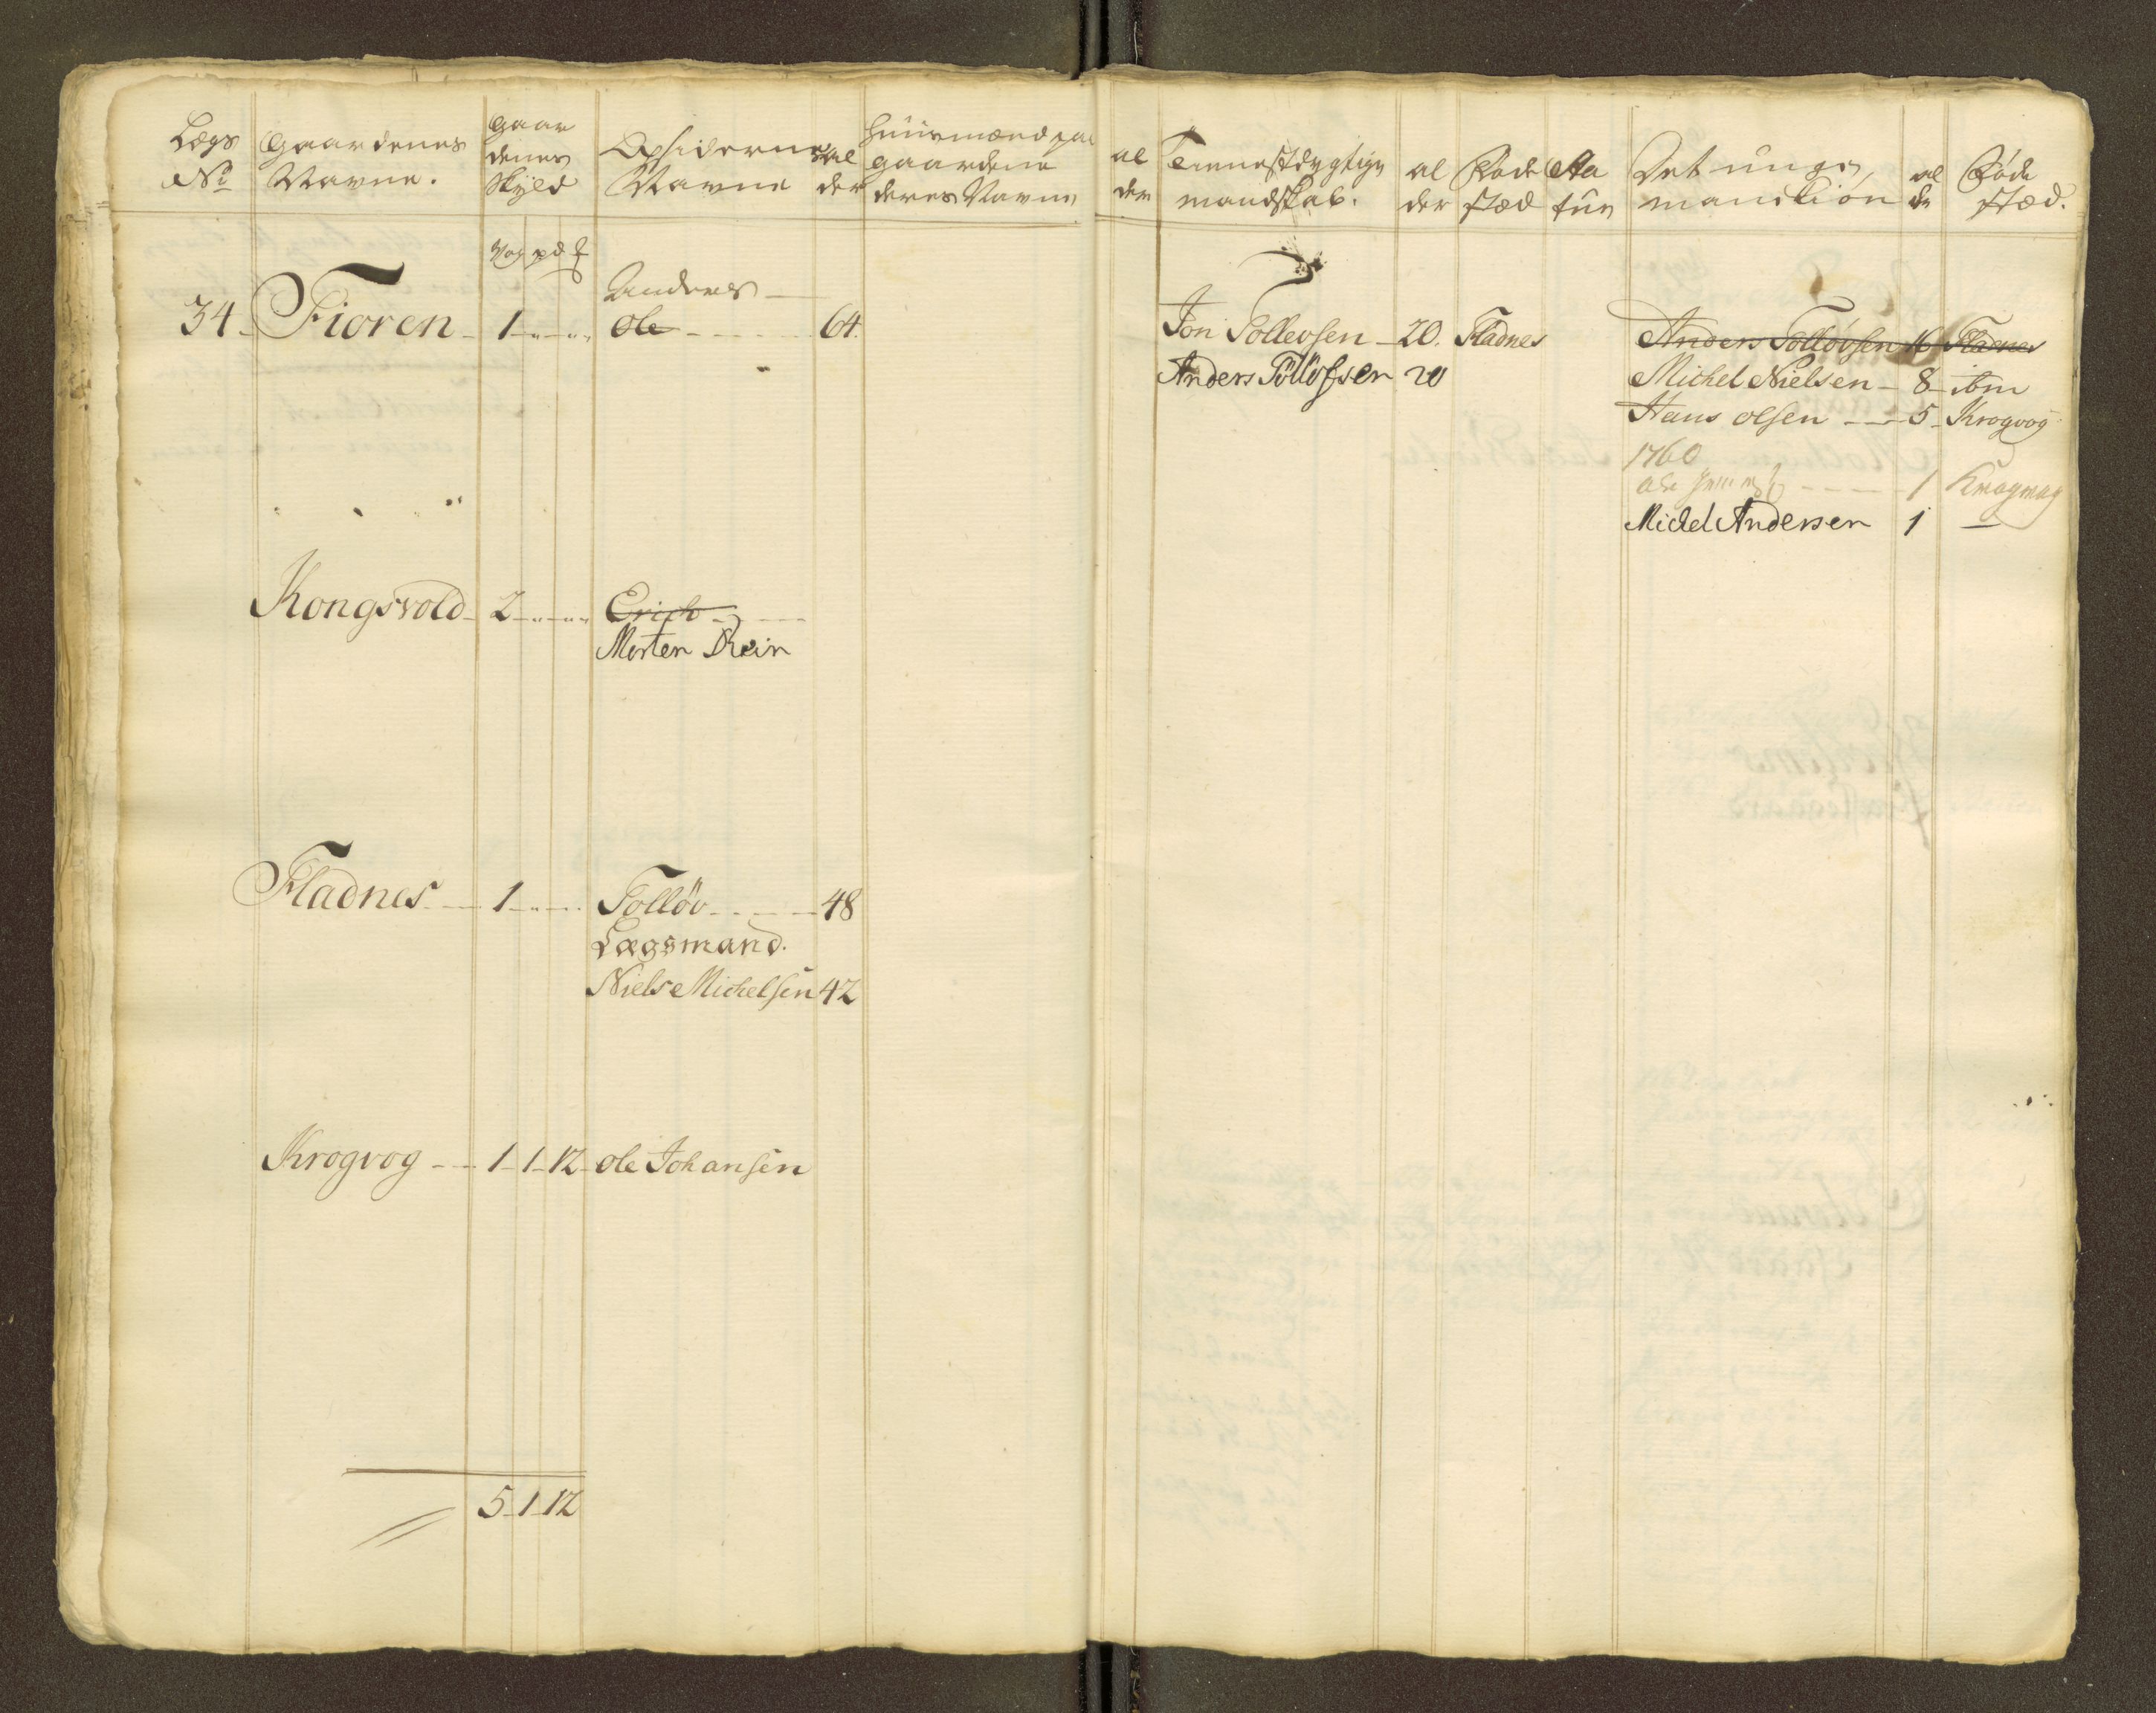 Lægs No
Gaardenes Navne.
Gaardenes Skyld
Opsidernes Navne
alder
Huusmænd paa gaardene deres Navne
alder
Tienestdygtige mandskab.
alder
Føde stæd
Statur
Det unge mandkiøn
alder
Føde stæd.
Vog pd
Anders
34 Fioren 1 Ole 64.
Jon Tollevsen 20. Fladnes
Anders Tollöfsen 20
Anders Tolløvsen 16 Fladnes
Michel Nielsen 8 ibm
Hans Olsen 5 Krogvog
1760
Ole 1 Krogvog
Michel Andersen 1 —
Kongsvold 2 Erich
Morten Rein
Fladnes 1 Tolløv 48
Lægsmand.
Niels Michelsen 42
Krogvog 1 1 12 Ole Johansen
5 1 12